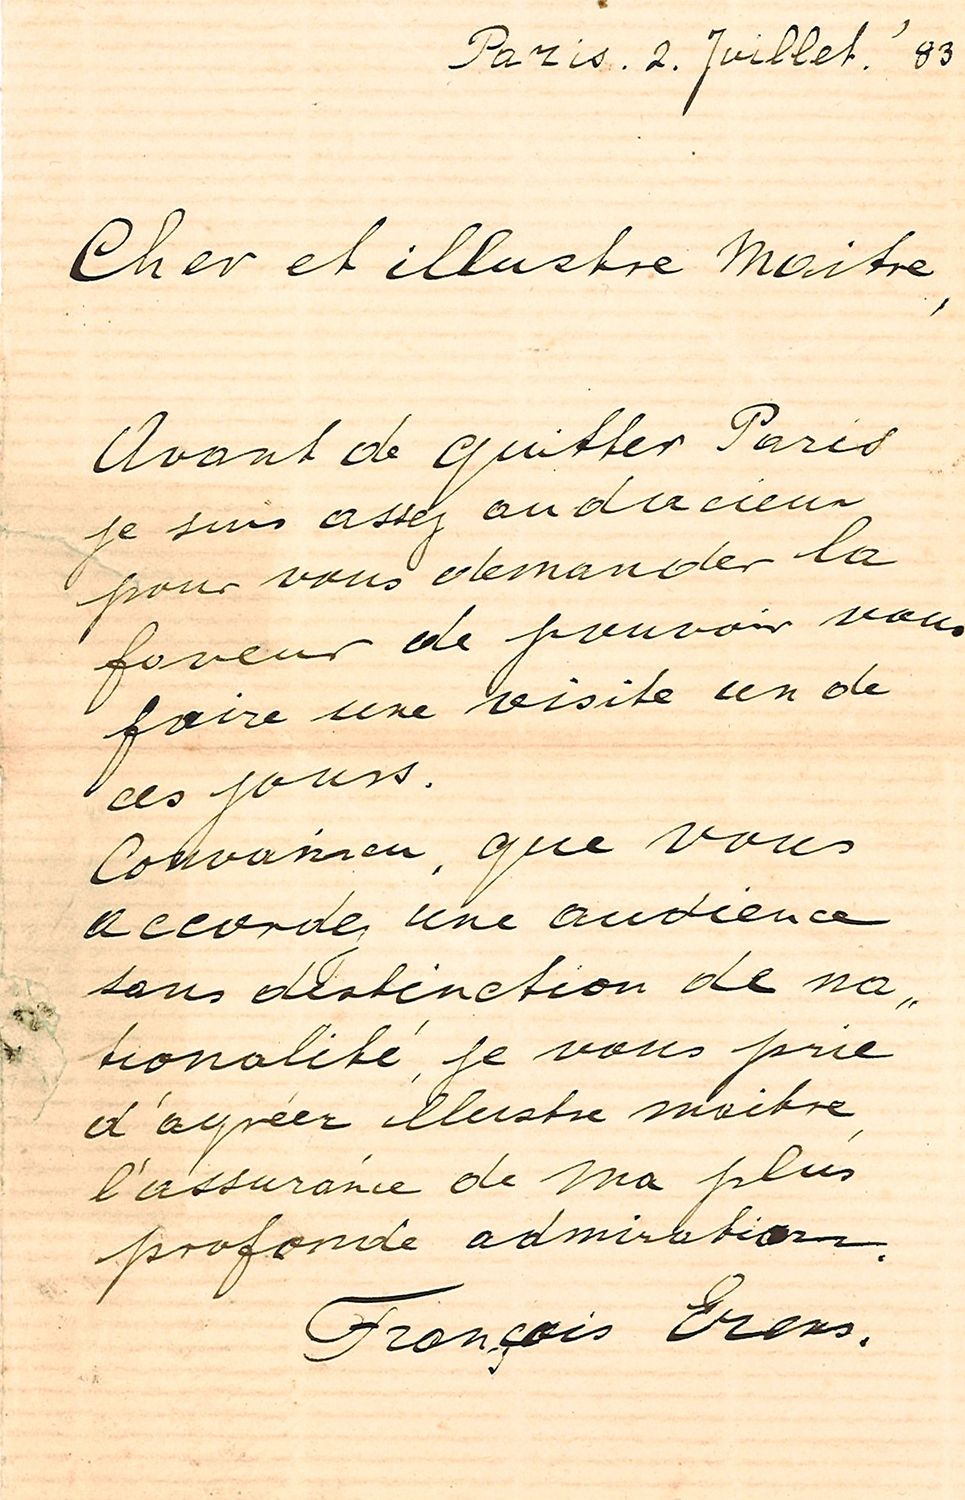 Paris. 2. Juillet. '83
Cher et illustre Maitre,
Avant de quitter Paris
je suis assez audacieux
pour vous demander la
faveur de pouvoir vous
faire une visite un de
ces jours.
Convaincu, que vous
accordez une audience
sans distinction de na„
tionalité, je vous prie
d'agréer illustre maitre,
l'assurance de ma plus
profonde admiration.
François Erens.